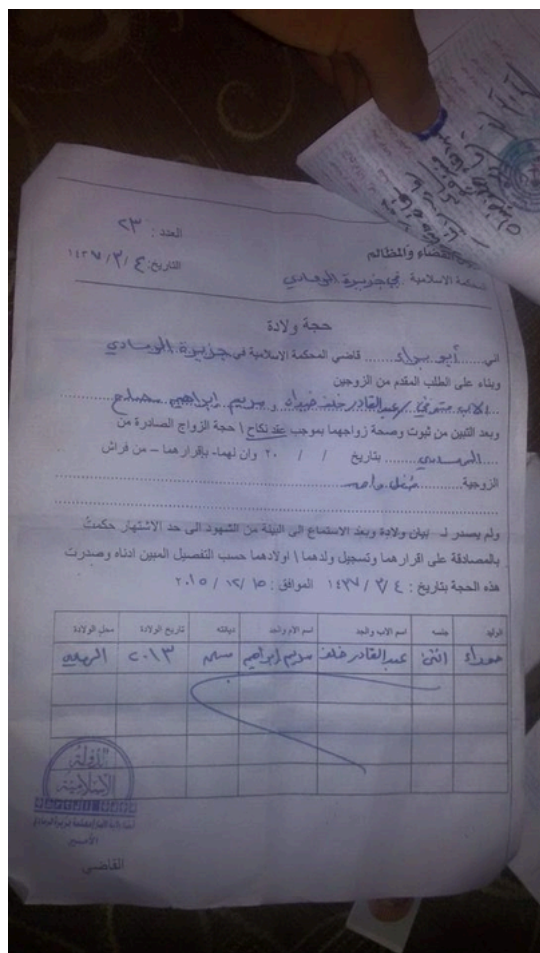 العدد : ٢٣
التاريخ: ٤ / ٣ / ١٤٣٧
القضاء والمظالم
المحكمة الاسلامية في جزيرة الرمادي
حجة ولادة
اني ...... أبو براء ...... قاضي المحكمة الاسلامية في جزيرة الرمادي
وبناء على الطلب المقدم من الزوجين
الأب متوفي / عبدالقادر خلف و مريم إبراهيم
وبعد التبين من ثبوت وصحة زواجهما بموجب عقد نكاح \ حجة الزواج الصادرة من
بتاريخ / / ٢٠ وان لهما- بإقرارهما – من فراش
الزوجية ...... طفل واحد
ولم يصدر لـ بيان ولادة وبعد الاستماع الى البينة من الشهود الى حد الاشتهار حكمت
بالمصادقة على اقرارهما وتسجيل ولدهما \ اولادهما حسب التفصيل المبين ادناه وصدرت
هذه الحجة بتاريخ : ٤ / ٣ / ١٤٣٧ الموافق : ١٥ / ١٢ / ٢٠١٥
الوليد جنسه اسم الاب والجد اسم الام والجد ديانته تاريخ الولادة محل الولادة
انثى عبدالقادر خلف مريم إبراهيم ٢٠١٣ الرمادي
الدولة
الإسلامية
القاضي